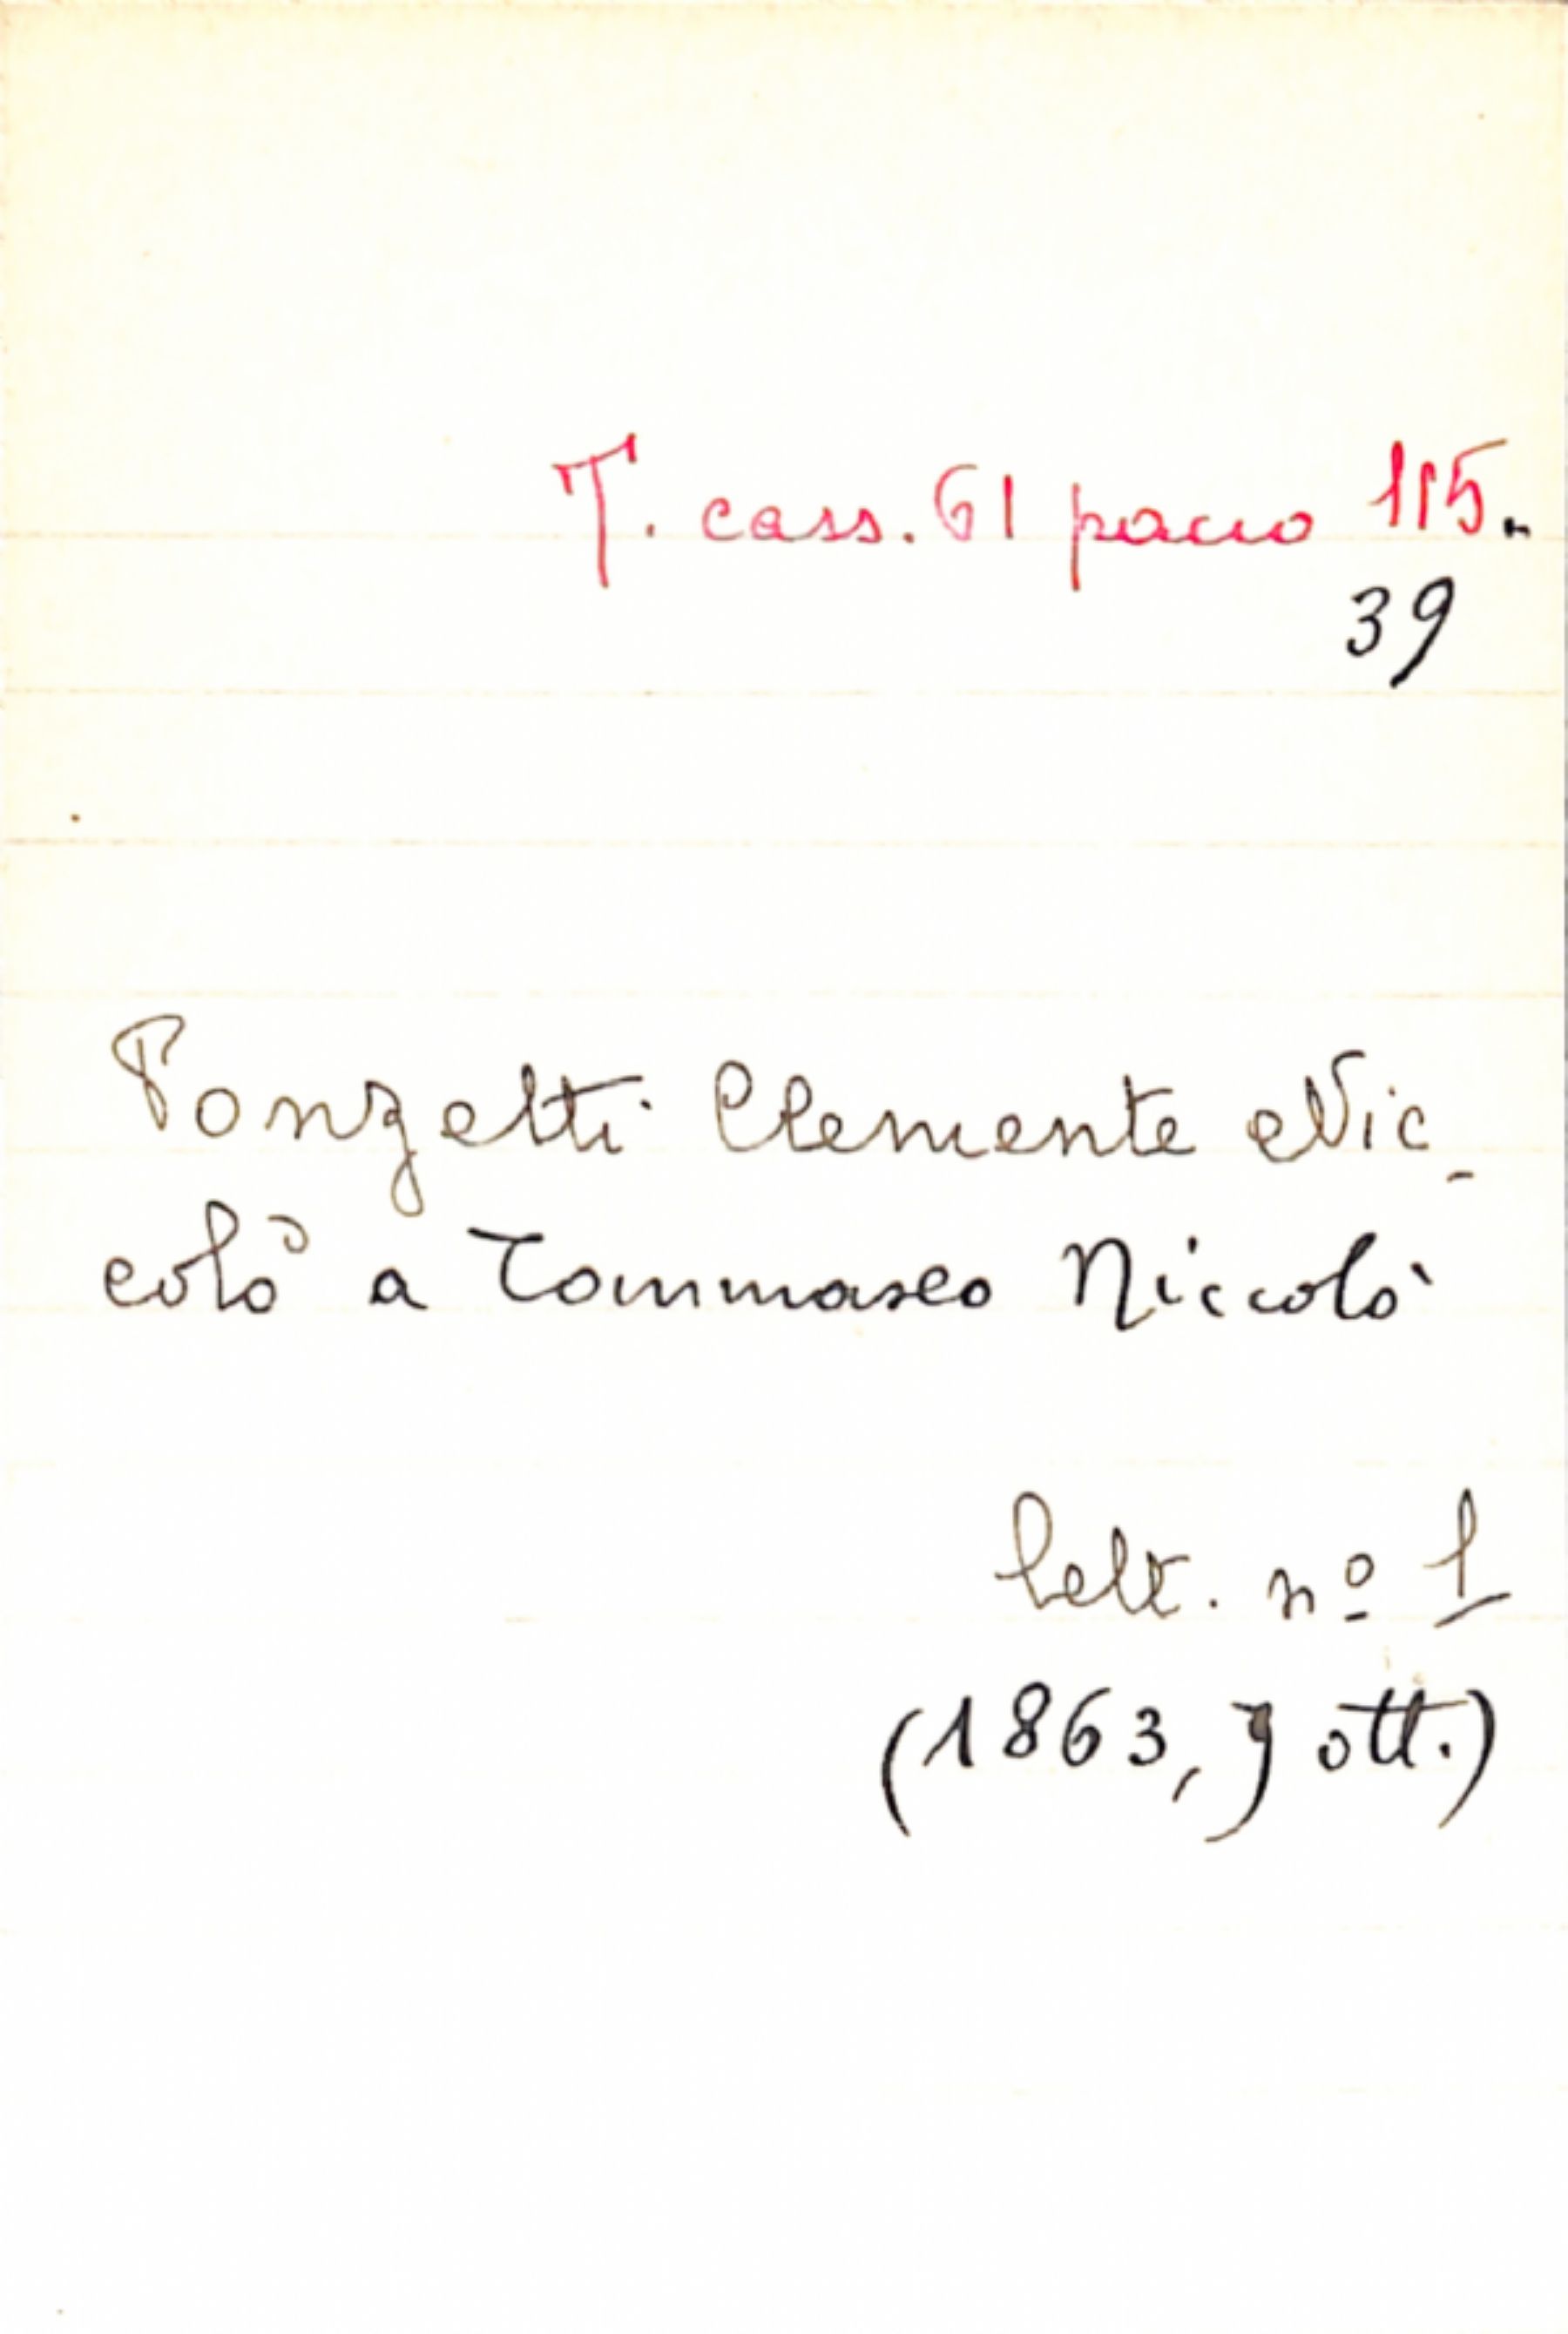 T. cass. 61 pacco 115.
39
Ponzetti Clemente Nic-
colò a Tommaseo Niccolò
lett. nº 1
(1863, 9 ott.)